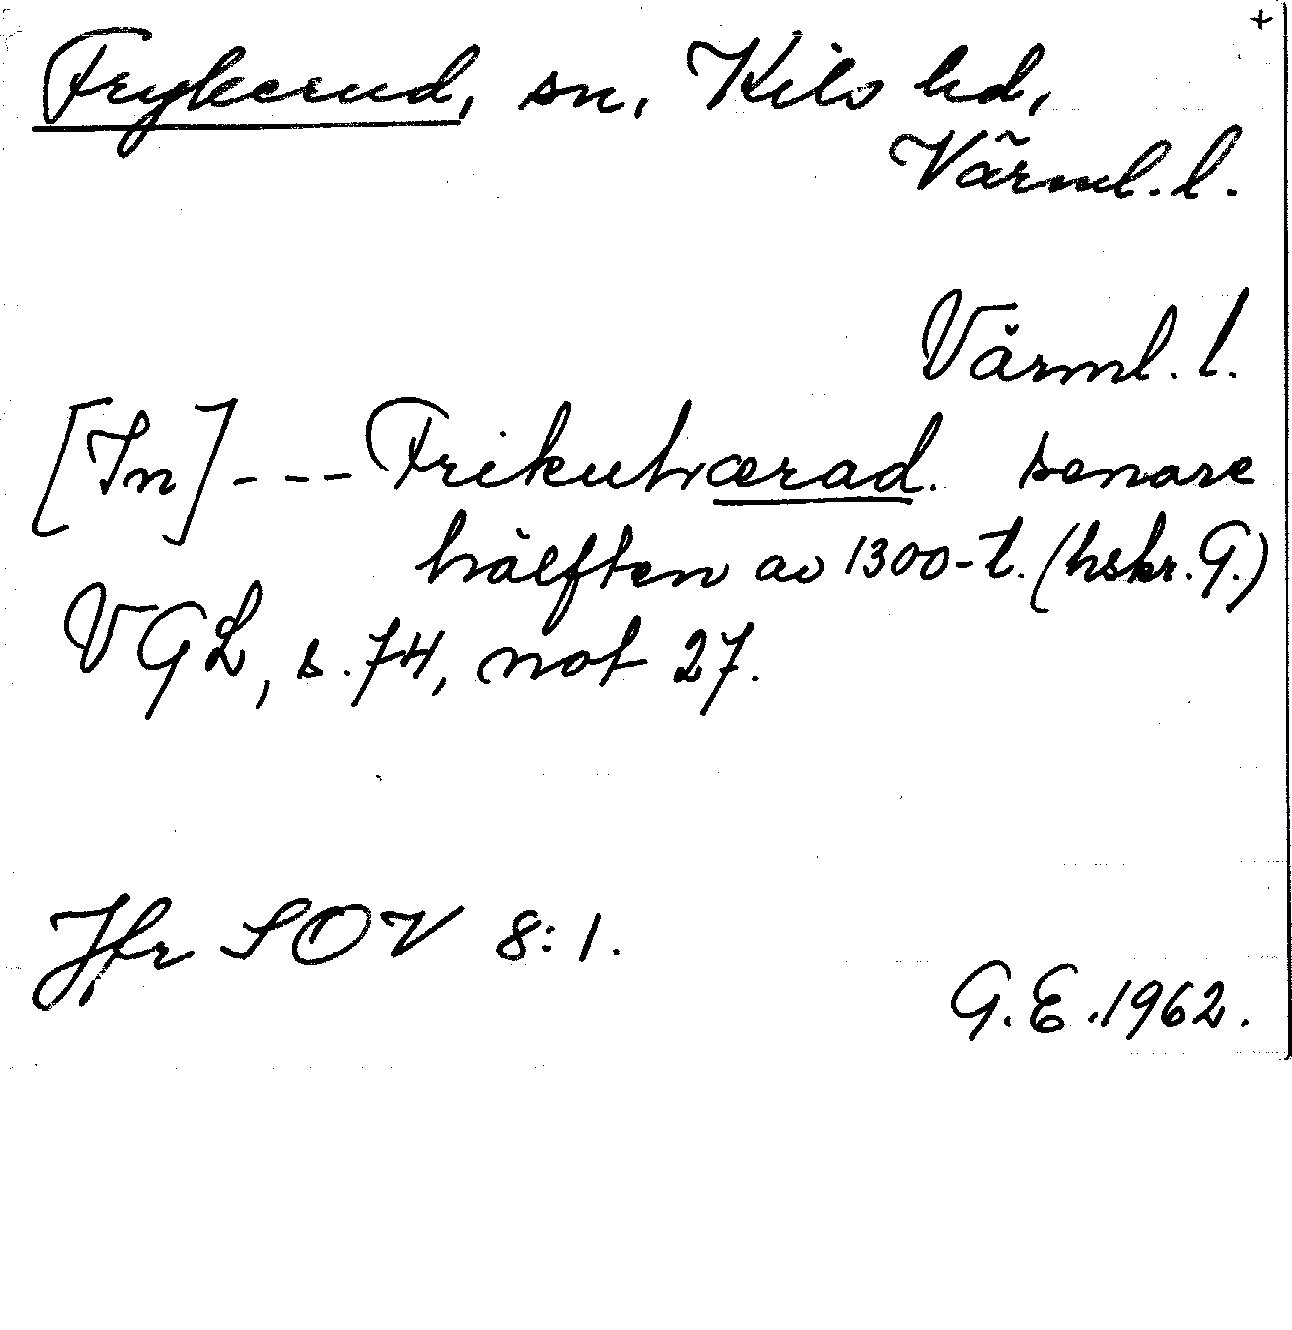 +
Frykerud, sn, Kils hd,
Värml. l.
Värml. l.
[In] - - - Frikuhværad. senare
hälften av 1300-t. (hskr. G.)
VGL, s. 74, not 27.
Jfr SOV 8:1.
G. E. 1962.